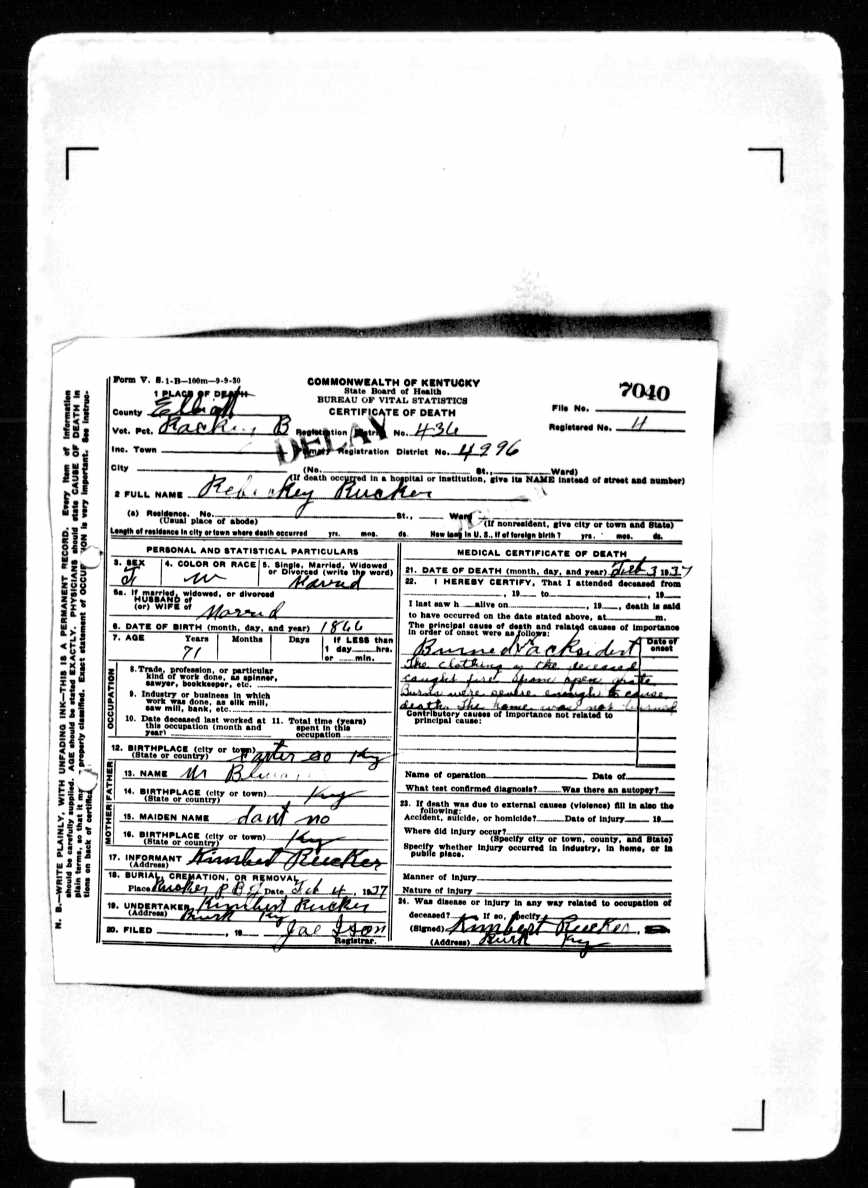 N. B.—WRITE PLAINLY, WITH UNFADING INK—THIS IS A PERMANENT RECORD. Every item of information
should be carefully supplied. AGE should be stated EXACTLY. PHYSICIANS should state CAUSE OF DEATH in
plain terms, so that it may properly classified. Exact statement of OCCUPATION is very important. See instruc-
tions on back of certificate
Form V. S. 1-B—100m—9-9-30
COMMONWEALTH OF KENTUCKY
State Board of Health
BUREAU OF VITAL STATISTICS
CERTIFICATE OF DEATH
7040
1 PLACE OF DEATH
County Elliott
File No.
Vot. Pct. B Registration District No. 436
Registered No. 4
DELAY
Inc. Town Primary Registration District No. 4296
City (No. St., Ward)
(If death occurred in a hospital or institution, give its NAME instead of street and number)
2 FULL NAME Rucker
(a) Residence. No. St., Ward
(Usual place of abode) (If nonresident, give city or town and State)
Length of residence in city or town where death occurred yrs. mos. ds. How long in U. S., if of foreign birth? yrs. mos. ds.
PERSONAL AND STATISTICAL PARTICULARS
3. SEX 4. COLOR OR RACE 5. Single, Married, Widowed
or Divorced (write the word)
F W Marred
5a. If married, widowed, or divorced
HUSBAND of
(or) WIFE of Marred
6. DATE OF BIRTH (month, day, and year) 1866
7. AGE Years Months Days If LESS than
71 1 day hrs.
or min.
OCCUPATION
8. Trade, profession, or particular
kind of work done, as spinner,
sawyer, bookkeeper, etc.
9. Industry or business in which
work was done, as silk mill,
saw mill, bank, etc.
10. Date deceased last worked at 11. Total time (years)
this occupation (month and spent in this
year) occupation
12. BIRTHPLACE (city or town) Carter Co Ky
(State or country)
FATHER
13. NAME
14. BIRTHPLACE (city or town) Ky
(State or country)
MOTHER
15. MAIDEN NAME dant no
16. BIRTHPLACE (city or town) Ky
(State or country)
17. INFORMANT Kimbert Rucker
(Address)
18. BURIAL, CREMATION, OR REMOVAL
Place Rucker Date Feb 4, 1937
19. UNDERTAKER Kimbert Rucker
(Address) Burk Ky
20. FILED , 19 Joe Ison
Registrar.
MEDICAL CERTIFICATE OF DEATH
21. DATE OF DEATH (month, day, and year) Feb 3 1937
22. I HEREBY CERTIFY, That I attended deceased from
, 19 to , 19
I last saw h alive on , 19 , death is said
to have occurred on the date stated above, at m.
The principal cause of death and related causes of importance
in order of onset were as follows:
Date of
onset
Burned acksident
The clothing of the deceased
caught fire from open grate
Burns were severe enough to cause
death. The home was not burned
Contributory causes of importance not related to
principal cause:
Name of operation Date of
What test confirmed diagnosis? Was there an autopsy?
23. If death was due to external causes (violence) fill in also the
following:
Accident, suicide, or homicide? Date of injury 19
Where did injury occur?
(Specify city or town, county, and State)
Specify whether injury occurred in industry, in home, or in
public place.
Manner of injury
Nature of injury
24. Was disease or injury in any way related to occupation of
deceased? If so, specify
(Signed) Kimbert Rucker
(Address) Burk Ky